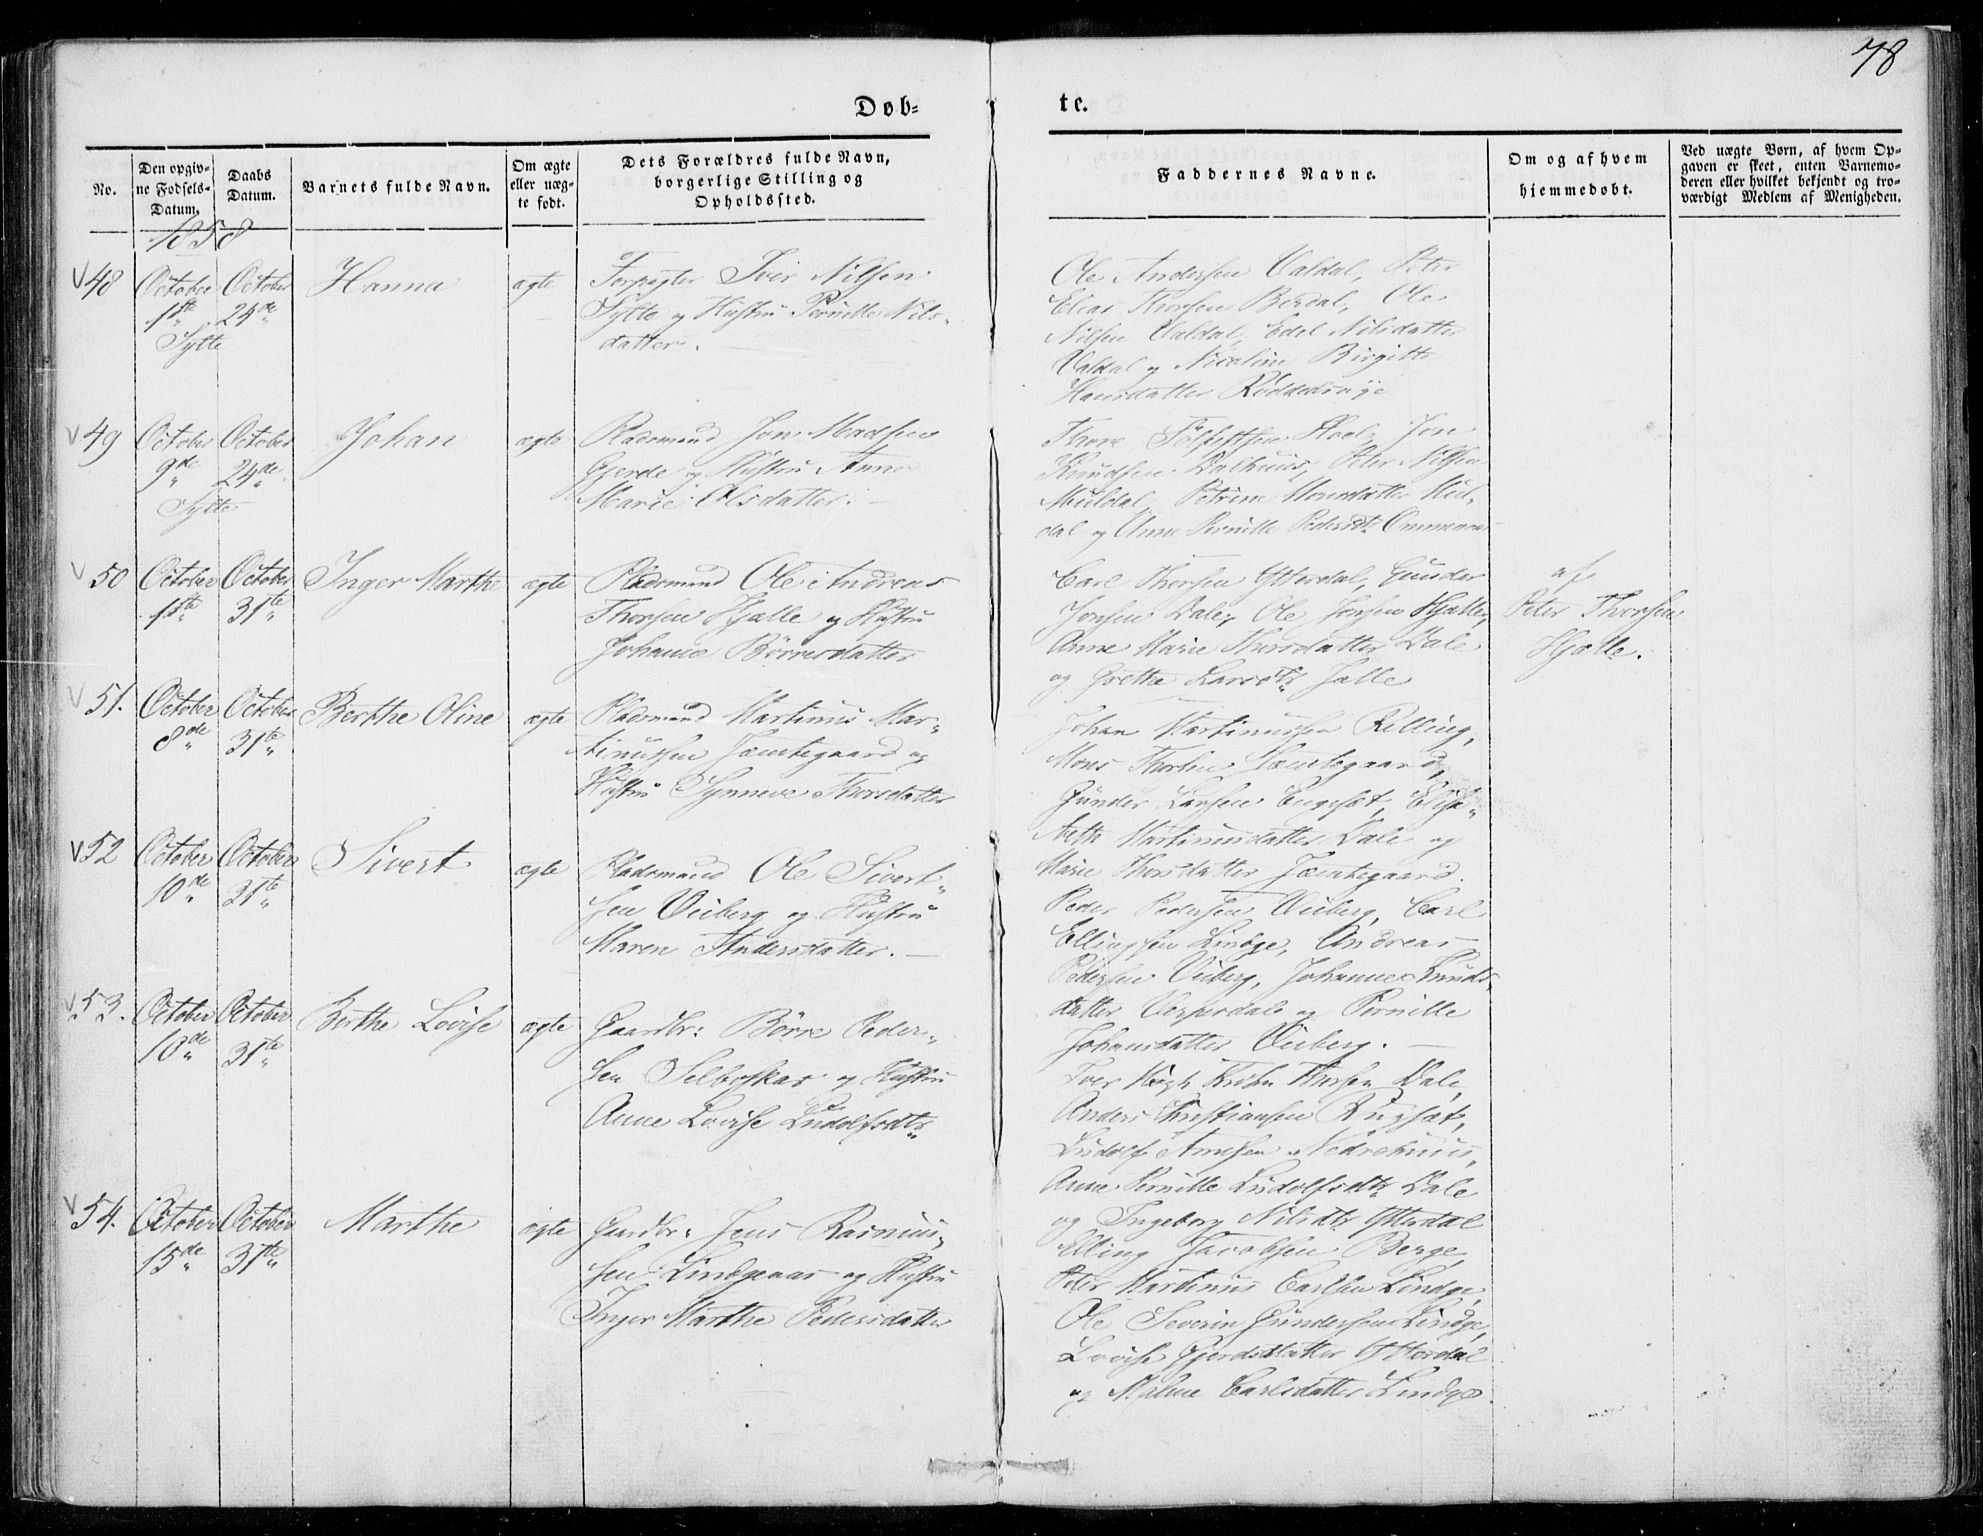 78
Døb=
te.
No.
Den opgiv-
ne Fødsels-
Datum.
Daabs
Datum.
Barnets fulde Navn.
Om ægte
eller uæg-
te født.
Dets Forældres fulde Navn,
borgerlige Stilling og
Opholdssted.
Faddernes Navne.
Om og af hvem
hjemmedøbt.
Ved uægte Børn, af hvem Op-
gaven er skeet, enten Barnemo-
deren eller hvilket bekjendt og tro-
værdigt Medlem af Menigheden.
1858
V 48
October
1ste
Sylte
October
24de
Hanna
ægte
Forpagter Iver Nilsen
Sylte og Hustru Pernille Nils-
datter.
Ole Andersen Valdal, Peter
Elias Thorsen Berdal, Ole
Nilsen Valdal, Edel Nilsdatter
Valdal og Nicoline Birgitte
Hansdatter
V 49
October
9de
Sylte
October
24de
Johan
ægte
Pladsmand Jon Madsen
Gjerde og Hustru Anne
Marie Olsdatter. -
Thore Jon
Knudsen Dalhuus, Peter Nilsen
Muldal, Petrine Monsdatter Mul-
dal og Anne Pernille Pedersdtr
V 50
October
1ste
October
31te
Inger Marthe
ægte
Pladsmand Ole Andreas
Thorsen Hjelle og Hustru
Johanne Börresdatter
Carl Thorsen Ytterdal, Gunder
Jonsen Dale, Ole Jonsen Hjelle,
Anne Marie Thorsdatter Dale
og Grethe Larsdtr Jelle
af
Peter Thorsen
Hjelle.
V 51.
October
8de
October
31te
Berthe Oline
ægte
Pladsmand Martinus Mar-
tinussen Jemtegaard og
Hustru Synneve Thorsdatter
Johan Martinussen Relling,
Mons Thorsen Jemtegaard,
Gunder Larsen Engeset, Elisa-
beth Martinusdatter Dale og
Marie Thorsdatter Jemtegaard.
V 52
October
10de
October
31te
Sivert
ægte
Pladsmand Ole Sivert-
sen Viiberg og Hustru
Maren Andersdatter. -
Peder Pedersen Viiberg, Carl
Ellingsen Lindge, Andreas
Pedersen Viiberg, Johanne Knuds-
datter og Pernille
Johansdatter Viiberg. -
V 53.
October
10de
October
31te
Berthe Lovise
ægte
Gaardbr: Börre Peder-
sen Selboskar og Hustru
Anne Lovise Ludolfsdtr
Iver Høgh Krohn Thorsen Dale,
Anders Christiansen
Ludolf Arnesen Nedrehuus,
Anne Pernille Ludolfsdtr Dale
og Ingeborg Nilsdtr Ytterdal
V 54.
October
15de
October
31te
Marthe
ægte
Gaardbr: Jens Rasmus-
sen Lindgeaas og Hustru
Inger Marthe Pedersdatter
Elling Jacobsen Berge,
Peter Martinus Carlsen Lindge,
Ole Severin Gundersen Lindge,
Lovise Gjerdsdatter Ytterdal
og Malene Carlsdatter Lindge.